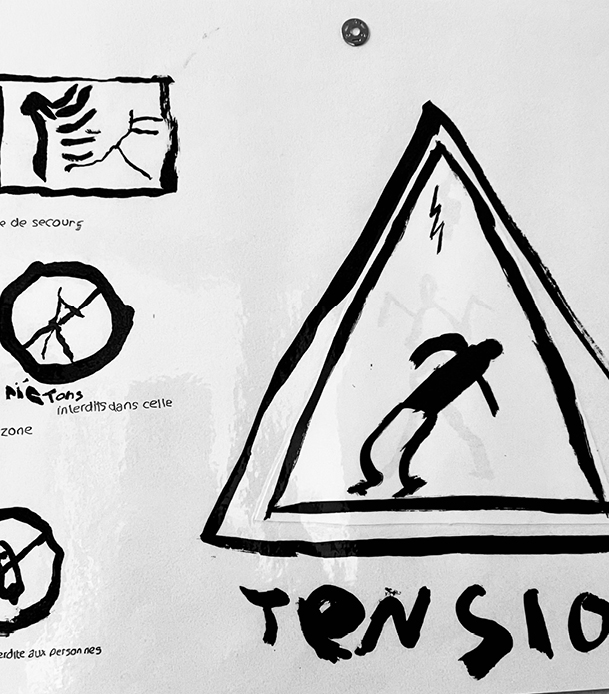 e de secours
piétons
interdits dans celle
zone
erdite aux personnes
TeNSIO